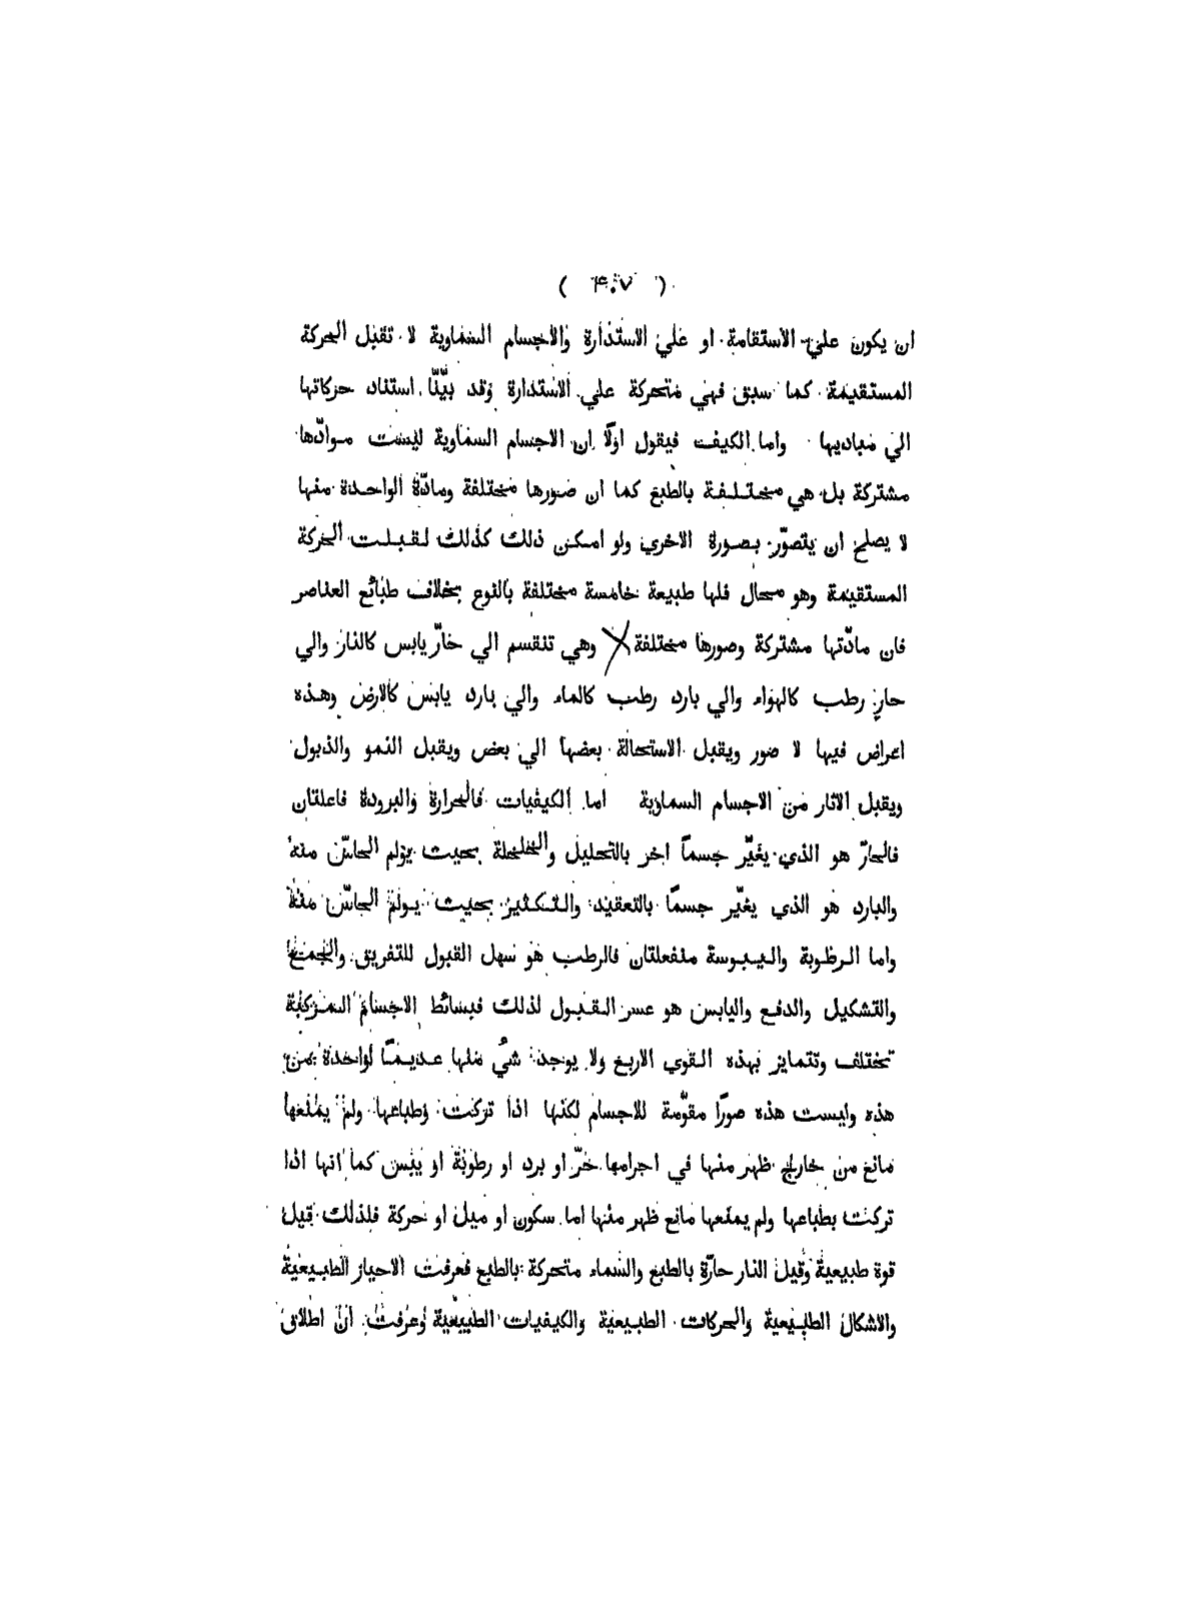 ( ۴۰۷ )
ان يكون علي الاستقامة او علي الاستدارة والاجسام السماوية لا تقبل الحركة
المستقيمة كما سبق فهي متحركة علي الاستدارة وقد بيّنّا استناد حركاتها
الي مباديها واما الكيف فيقول اولًا ان الاجسام السماوية ليست موادّها
مشتركة بل هي مختلفة بالطبع كما ان صورها مختلفة ومادّة الواحدة منها
لا يصلح ان يتصوّر بصورة الاخري ولو امكن ذلك كذلك لقبلت الحركة
المستقيمة وهو محال فلها طبيعة خامسة مختلفة بالنوع بخلاف طبائع العناصر
فان مادّتها مشتركة وصورها مختلفة وهي تنقسم الي حارّ يابس كالنار والي
حار رطب كالهواء والي بارد رطب كالماء والي بارد يابس كالارض وهذه
اعراض فيها لا صور ويقبل الاستحالة بعضها الي بعض ويقبل النمو والذبول
ويقبل الاثار من الاجسام السماوية اما الكيفيات فالحرارة والبرودة فاعلتان
فالحارّ هو الذي يغيّر جسمًا اخر بالتحليل والخلخلة بحيث يؤلم الحاسّ منه
والبارد هو الذي يغيّر جسمًا بالتعقيد والتكثير بحيث يولم الحاسّ منه
واما الرطوبة واليبوسة منفعلتان فالرطب هو سهل القبول للتفريق والجمع
والتشكيل والدفع واليابس هو عسر القبول لذلك فبسائط الاجسام المركبة
تختلف وتتمايز بهذه القوي الاربع ولا يوجد شيُ منها عديمًا لواحدة من
هذه وليست هذه صورًا مقوّمة للاجسام لكنها اذا تركت وطباعها ولم يمنعها
مانع من خارج ظهر منها في اجرامها حرّ او برد او رطوبة او يبس كما انها اذا
تركت بطباعها ولم يمنعها مانع ظهر منها اما سكون او ميل او حركة فلذلك قيل
قوة طبيعية وقيل النار حارّة بالطبع والسماء متحركة بالطبع فعرفت الاحياز الطبيعية
والاشكال الطبيعية والحركات الطبيعية والكيفيات الطبيعية وعرفت ان اطلاق